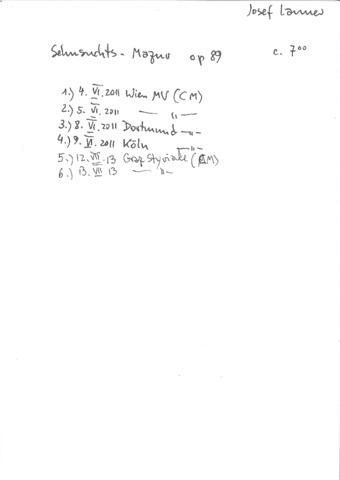 Josef Lanner
Sehnsuchts - Mazur op 89 c. 7⁰⁰
1.) 4. VI. 2011 Wien MV (CM)
2.) 5. VI. 2011 — " —
3.) 8. VI. 2011 Dortmund — " —
4.) 9. VI. 2011 Köln — " —
5.) 12. VII. 13 Graz Styriarte (CM)
6.) 13. VII 13 — " —